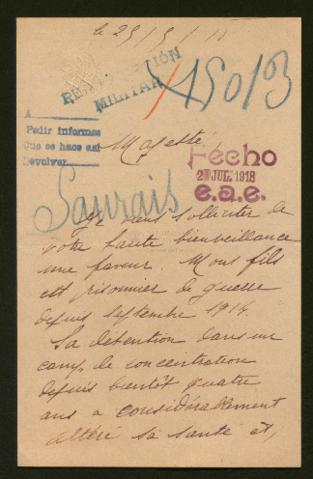 le 23/5/18
REPRESENTACIÓN
MILITAR
15013
A
Pedir informes
Que se hace así
Devolver
Majesté,
Fecho
2 JUL. 1918
e.a.e.
Saurais
Je viens solliciter de
votre haute bienveillance
une faveur. Mons fils
est prisonnier de guerre
depuis septembre 1914.
Sa détention dans un
camp de concentration
depuis bientôt quatre
ans a considérablement
altéré sa santé et,